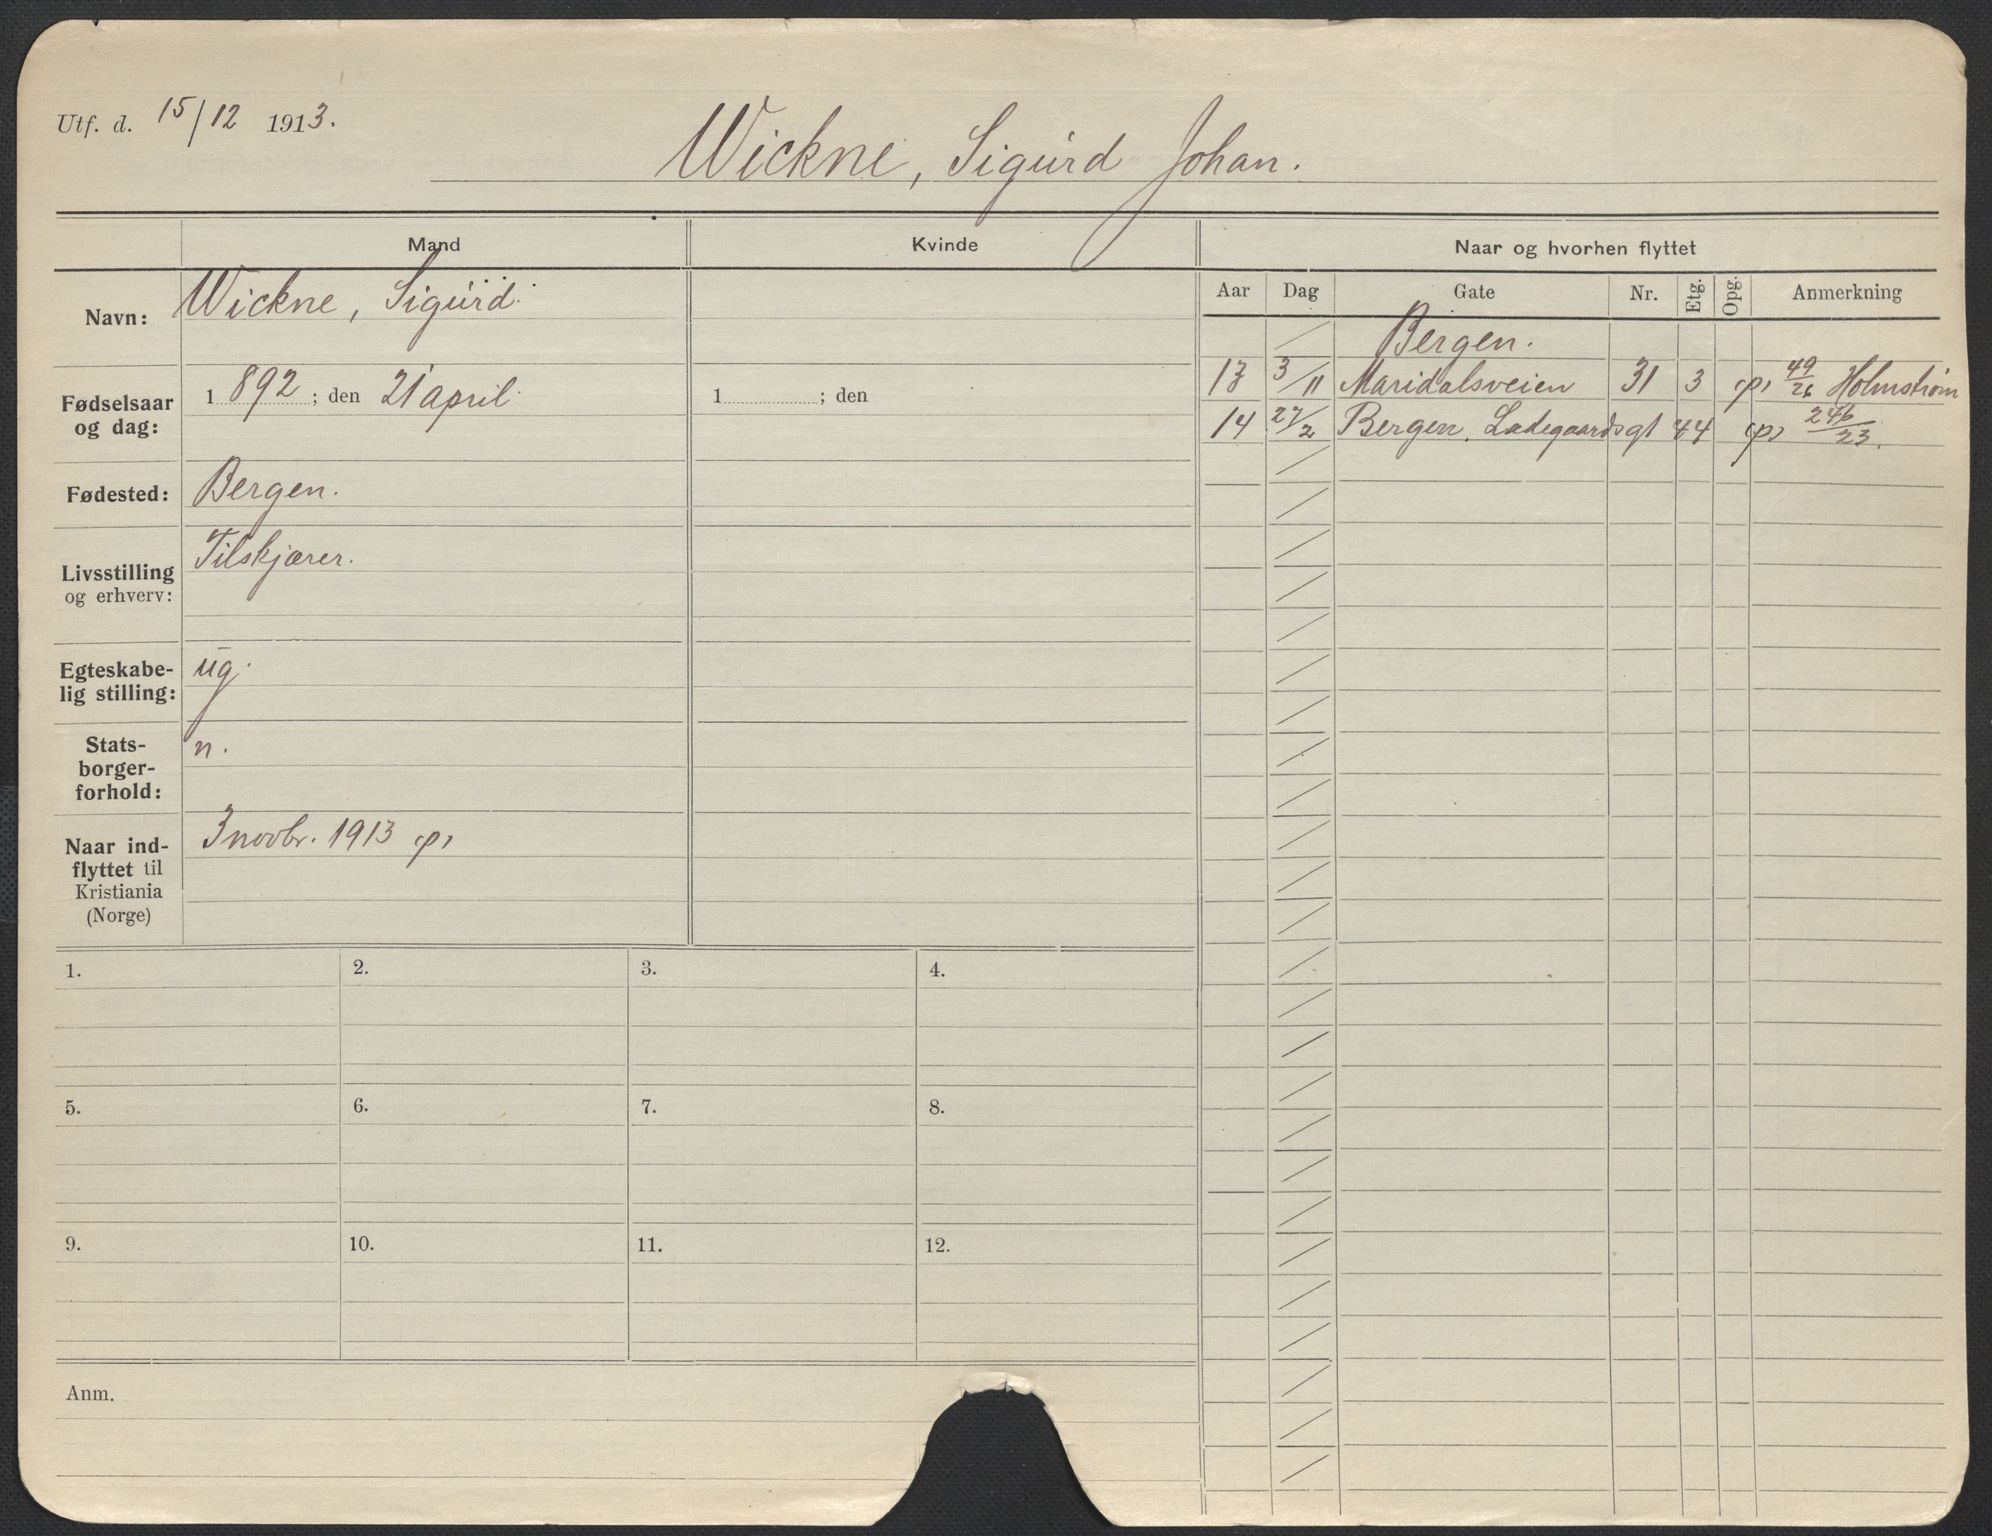 Utf. d. 15/12 1913.
Wickne, Sigurd Johan.
Mand
Kvinde
Naar og hvorhen flyttet
Navn:
Wickne, Sigurd
Fødselsaar
og dag:
1892; den 21 april
1 ; den
Fødested:
Bergen.
Livsstilling
og erhverv:
Tilskjærer.
Egteskabe-
lig stilling:
ug.
Stats-
borger-
forhold:
n.
Naar ind-
flyttet til
Kristiania
(Norge)
3 novbr. 1913 (p)
Aar Dag Gate Nr. Etg. Opg. Anmerkning
Bergen.
13 3/11 Maridalsveien 31 3 (p) 49/26 Holmstrøm
14 27/2 Bergen, Ladegaardsgt 44 (p) 246/23.
1. 2. 3. 4.
5. 6. 7. 8.
9. 10. 11. 12.
Anm.